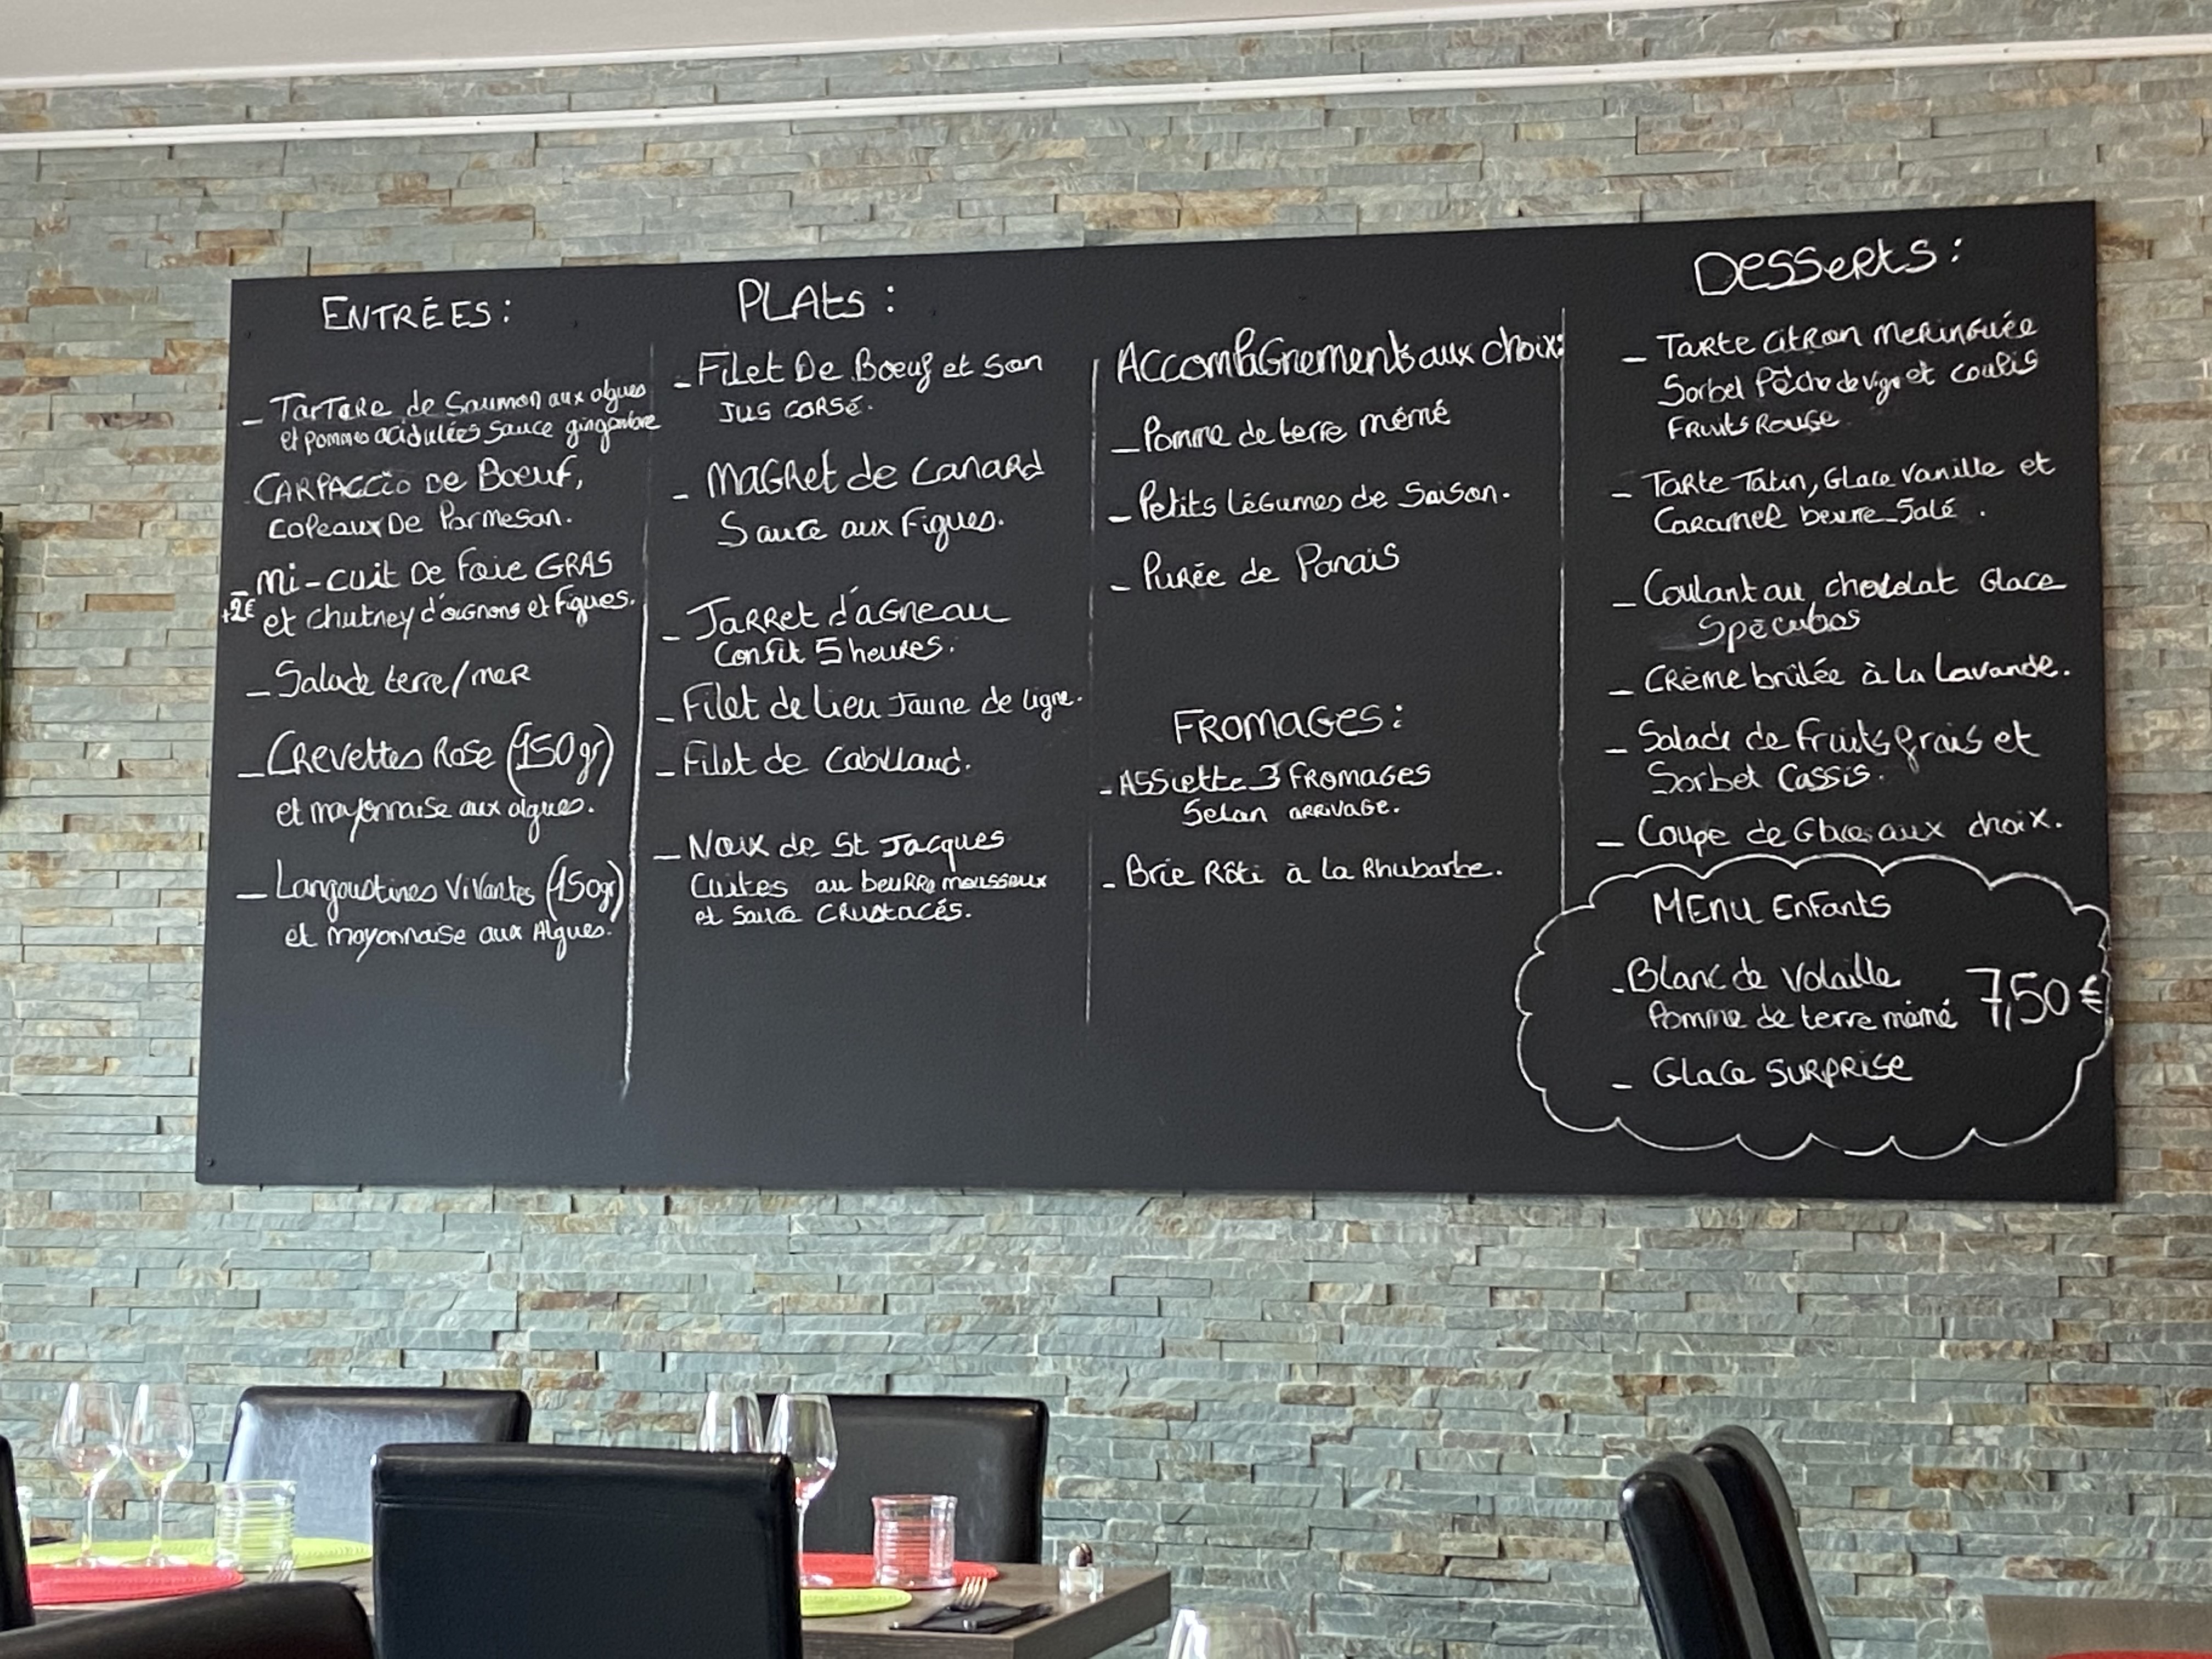 ENTRÉES :
_ Tartare de Saumon aux algues
et pommes acidulées sauce gingembre
- CARPACCIO De Boeuf,
Copeaux De Parmesan.
_ Mi-cuit De Foie GRAS
+2€ et chutney d'oignons et figues.
_ Salade terre/mer
_ Crevettes Rose (150gr)
et mayonnaise aux algues.
_ Langoustines Vivantes (150gr)
et mayonnaise aux Algues.
PLAts :
_ Filet De Bœuf et son
JUS CORSÉ.
_ Magret de Canard
Sauce aux Figues.
_ Jarret d'agneau
Confit 5 heures.
_ Filet de lieu Jaune de ligne.
_ Filet de Cabillaud.
_ Noix de St Jacques
Cuites au beurre mousseux
et sauce crustacés.
Accompagnements aux choix:
_ Pomme de terre mémé
_ Petits Légumes de Saison.
_ Purée de Panais
FROMAGES :
- Assiette 3 fromages
Selon arrivage.
- Brie Rôti à la Rhubarbe.
Desserts :
_ Tarte citron meringuée
Sorbet Pêche de vigne et coulis
Fruits Rouge
_ Tarte Tatin, Glace Vanille et
Caramel beurre-Salé.
_ Coulant au chocolat Glace
Spéculos
_ Crème brûlée à la Lavande.
_ Salade de fruits frais et
Sorbet Cassis.
_ Coupe de Glaces aux choix.
MENU Enfants
- Blanc de Volaille
Pomme de terre mémé 7,50€
_ Glace SURPRISE